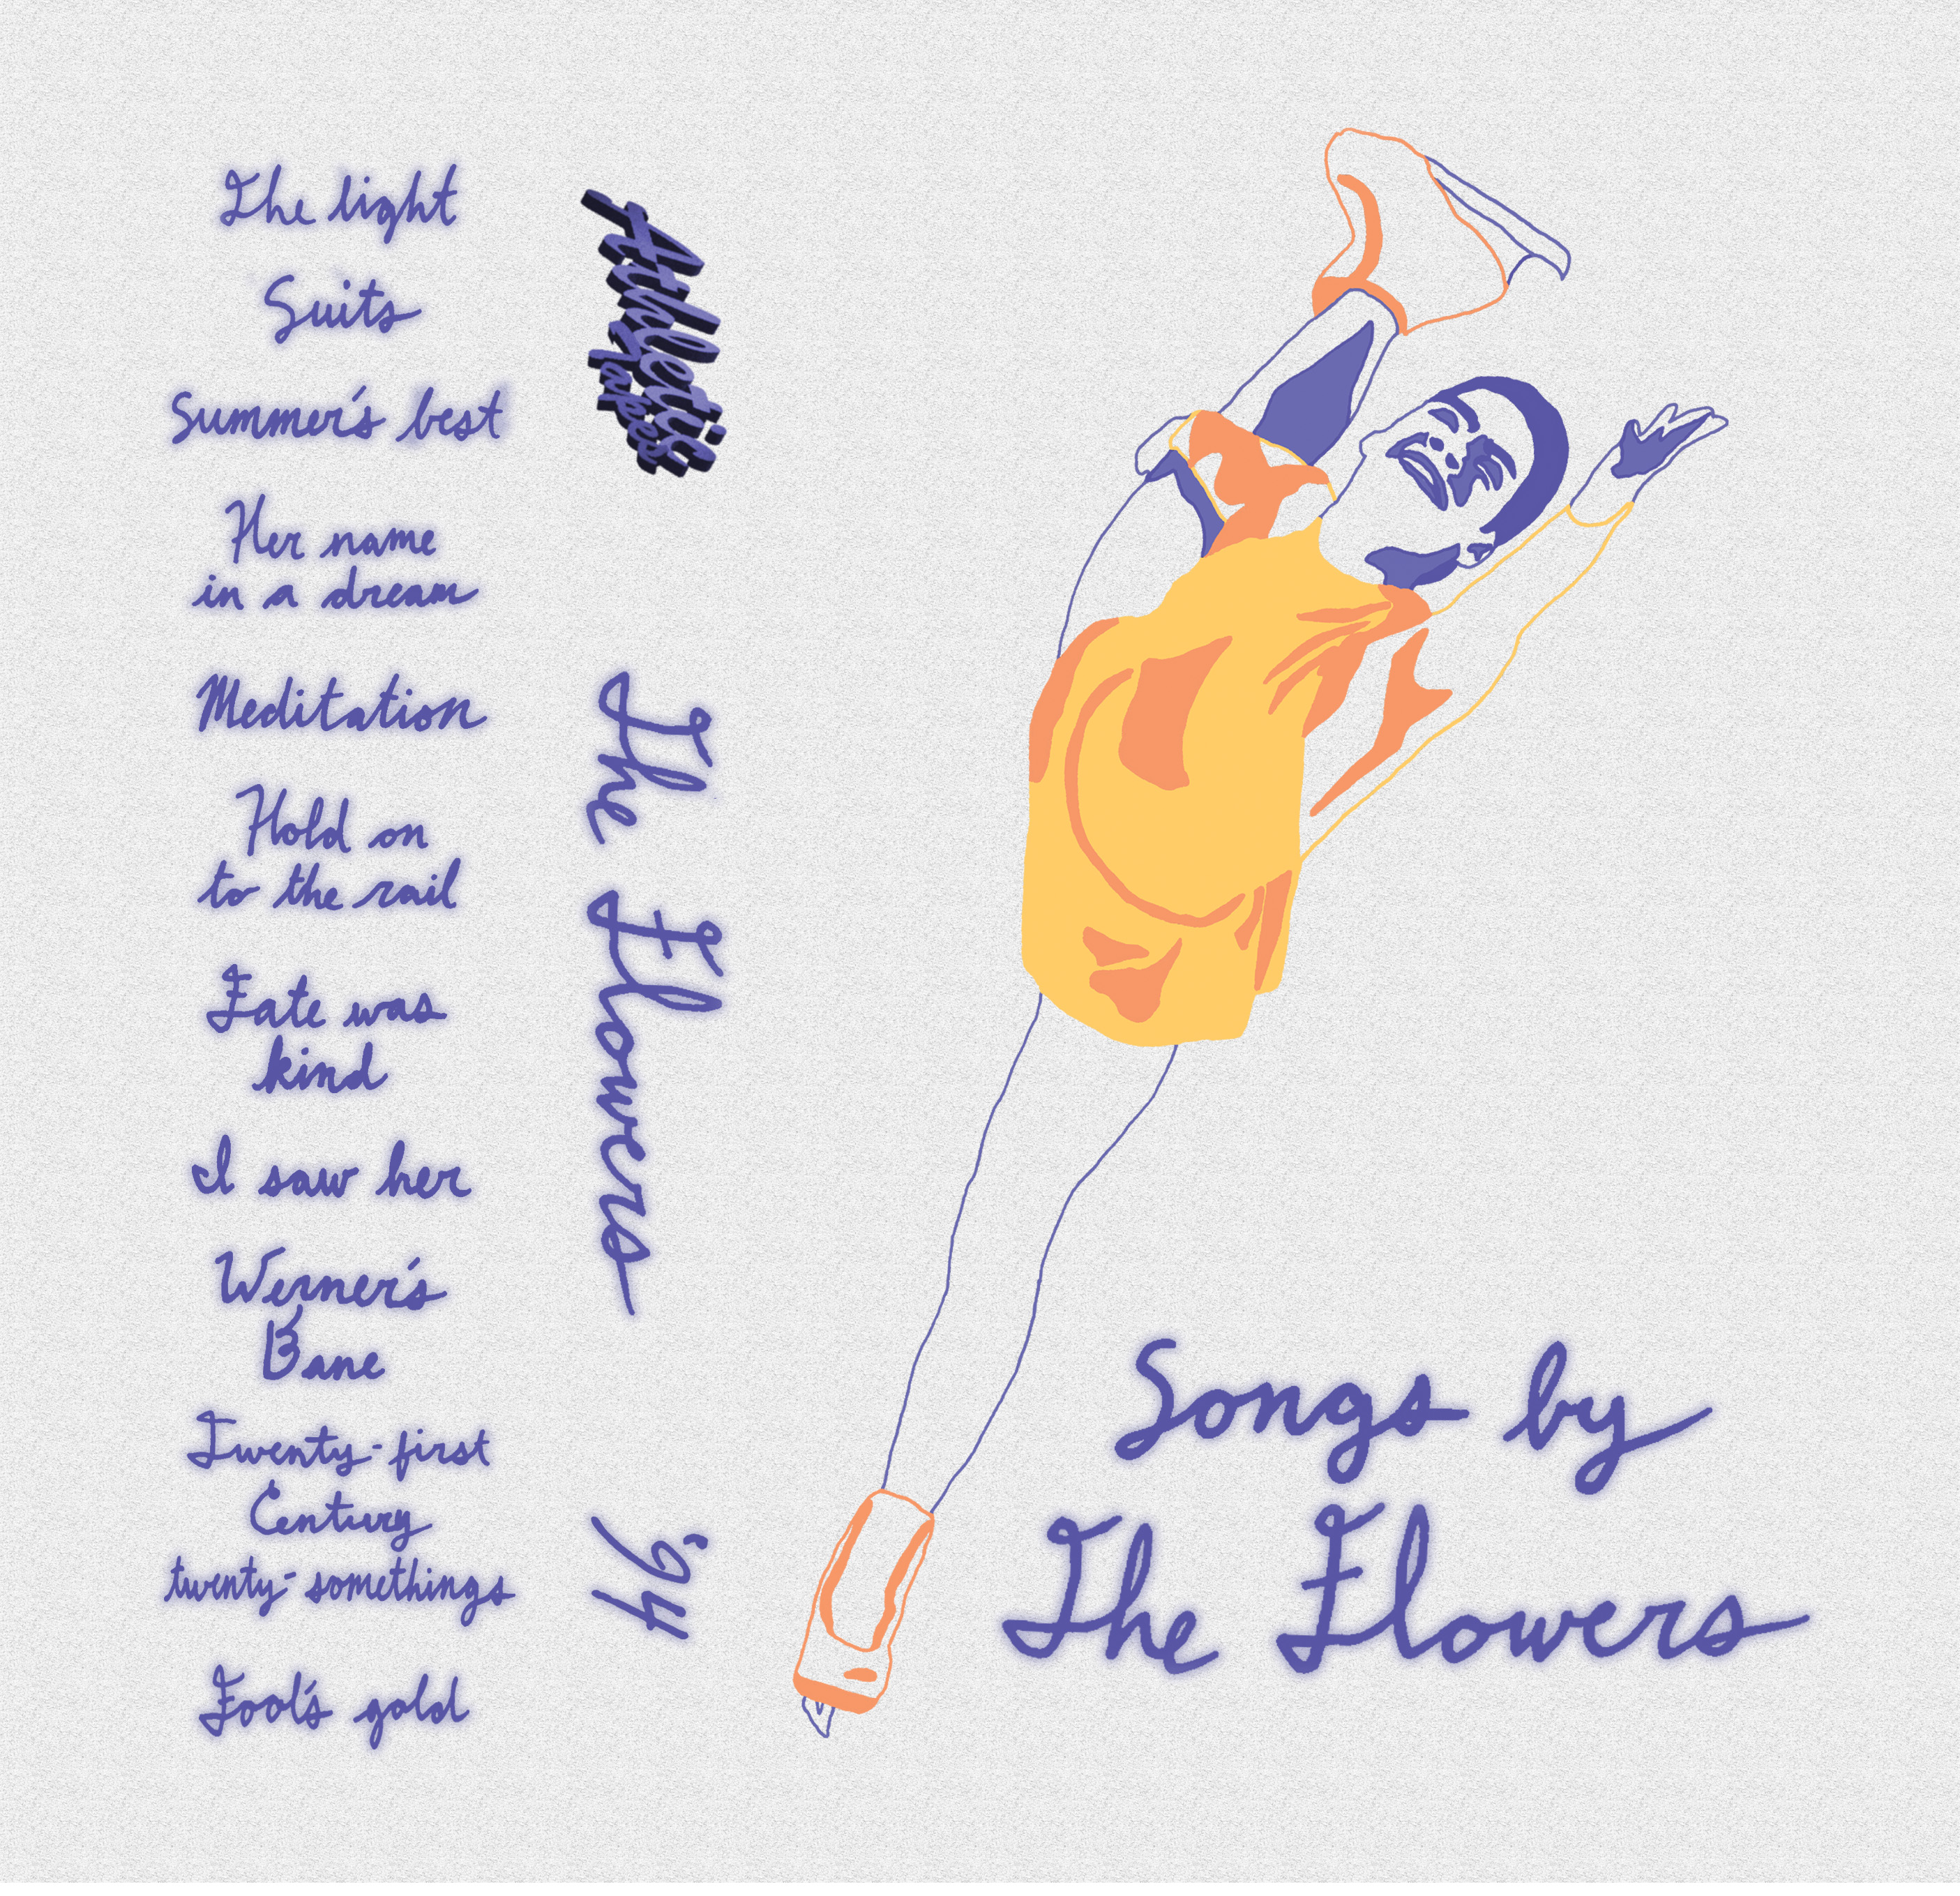 The light
Suits
Summer's best
Her name
in a dream
Meditation
Hold on
to the rail
Fate was
kind
I saw her
Werner's
Bane
Twenty-first
Century
twenty-somethings
Fool's gold
Athletic
Tapes
The Flowers
'94
Songs by
The Flowers